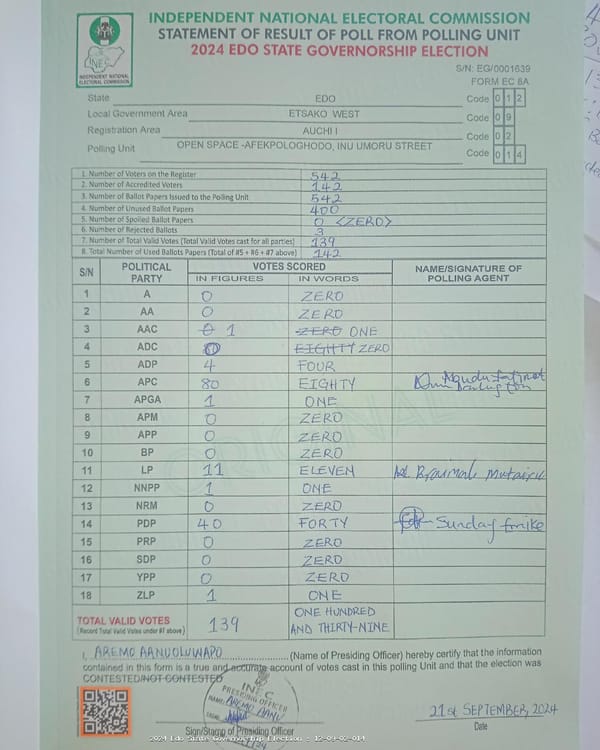 INDEPENDENT NATIONAL ELECTORAL COMMISSION
STATEMENT OF RESULT OF POLL FROM POLLING UNIT
2024 EDO STATE GOVERNORSHIP ELECTION
INEC
INDEPENDENT NATIONAL ELECTORAL COMMISSION
S/N: EG/0001639
FORM EC 8A
State EDO Code 0 1 2
Local Government Area ETSAKO WEST Code 0 9
Registration Area AUCHI I Code 0 2
Polling Unit OPEN SPACE -AFEKPOLOGHODO, INU UMORU STREET Code 0 1 4
1. Number of Voters on the Register 542
2. Number of Accredited Voters 142
3. Number of Ballot Papers Issued to the Polling Unit 542
4. Number of Unused Ballot Papers 400
5. Number of Spoiled Ballot Papers 0 <ZERO>
6. Number of Rejected Ballots 3
7. Number of Total Valid Votes (Total Valid Votes cast for all parties) 139
8. Total Number of Used Ballots Papers (Total of #5 + #6 + #7 above) 142
S/N POLITICAL PARTY VOTES SCORED NAME/SIGNATURE OF POLLING AGENT
IN FIGURES IN WORDS
1 A 0 ZERO
2 AA 0 ZERO
3 AAC 0 1 ZERO ONE
4 ADC 0 EIGHTY ZERO
5 ADP 4 FOUR
6 APC 80 EIGHTY
7 APGA 1 ONE
8 APM 0 ZERO
9 APP 0 ZERO
10 BP 0 ZERO
11 LP 11 ELEVEN
12 NNPP 1 ONE
13 NRM 0 ZERO
14 PDP 40 FORTY Sunday
15 PRP 0 ZERO
16 SDP 0 ZERO
17 YPP 0 ZERO
18 ZLP 1 ONE
TOTAL VALID VOTES 139 ONE HUNDRED AND THIRTY-NINE
(Record Total Valid Votes under #7 above)
ORIGINAL
I, AREMO AANUOLUWAPO (Name of Presiding Officer) hereby certify that the information
contained in this form is a true and accurate account of votes cast in this polling Unit and that the election was
CONTESTED/NOT CONTESTED
INEC
PRESIDING OFFICER
NAME: AREMO AANU
21st SEPTEMBER, 2024
Sign/Stamp of Presiding Officer Date
2024 Edo State Governorship Election - 12-09-02-014